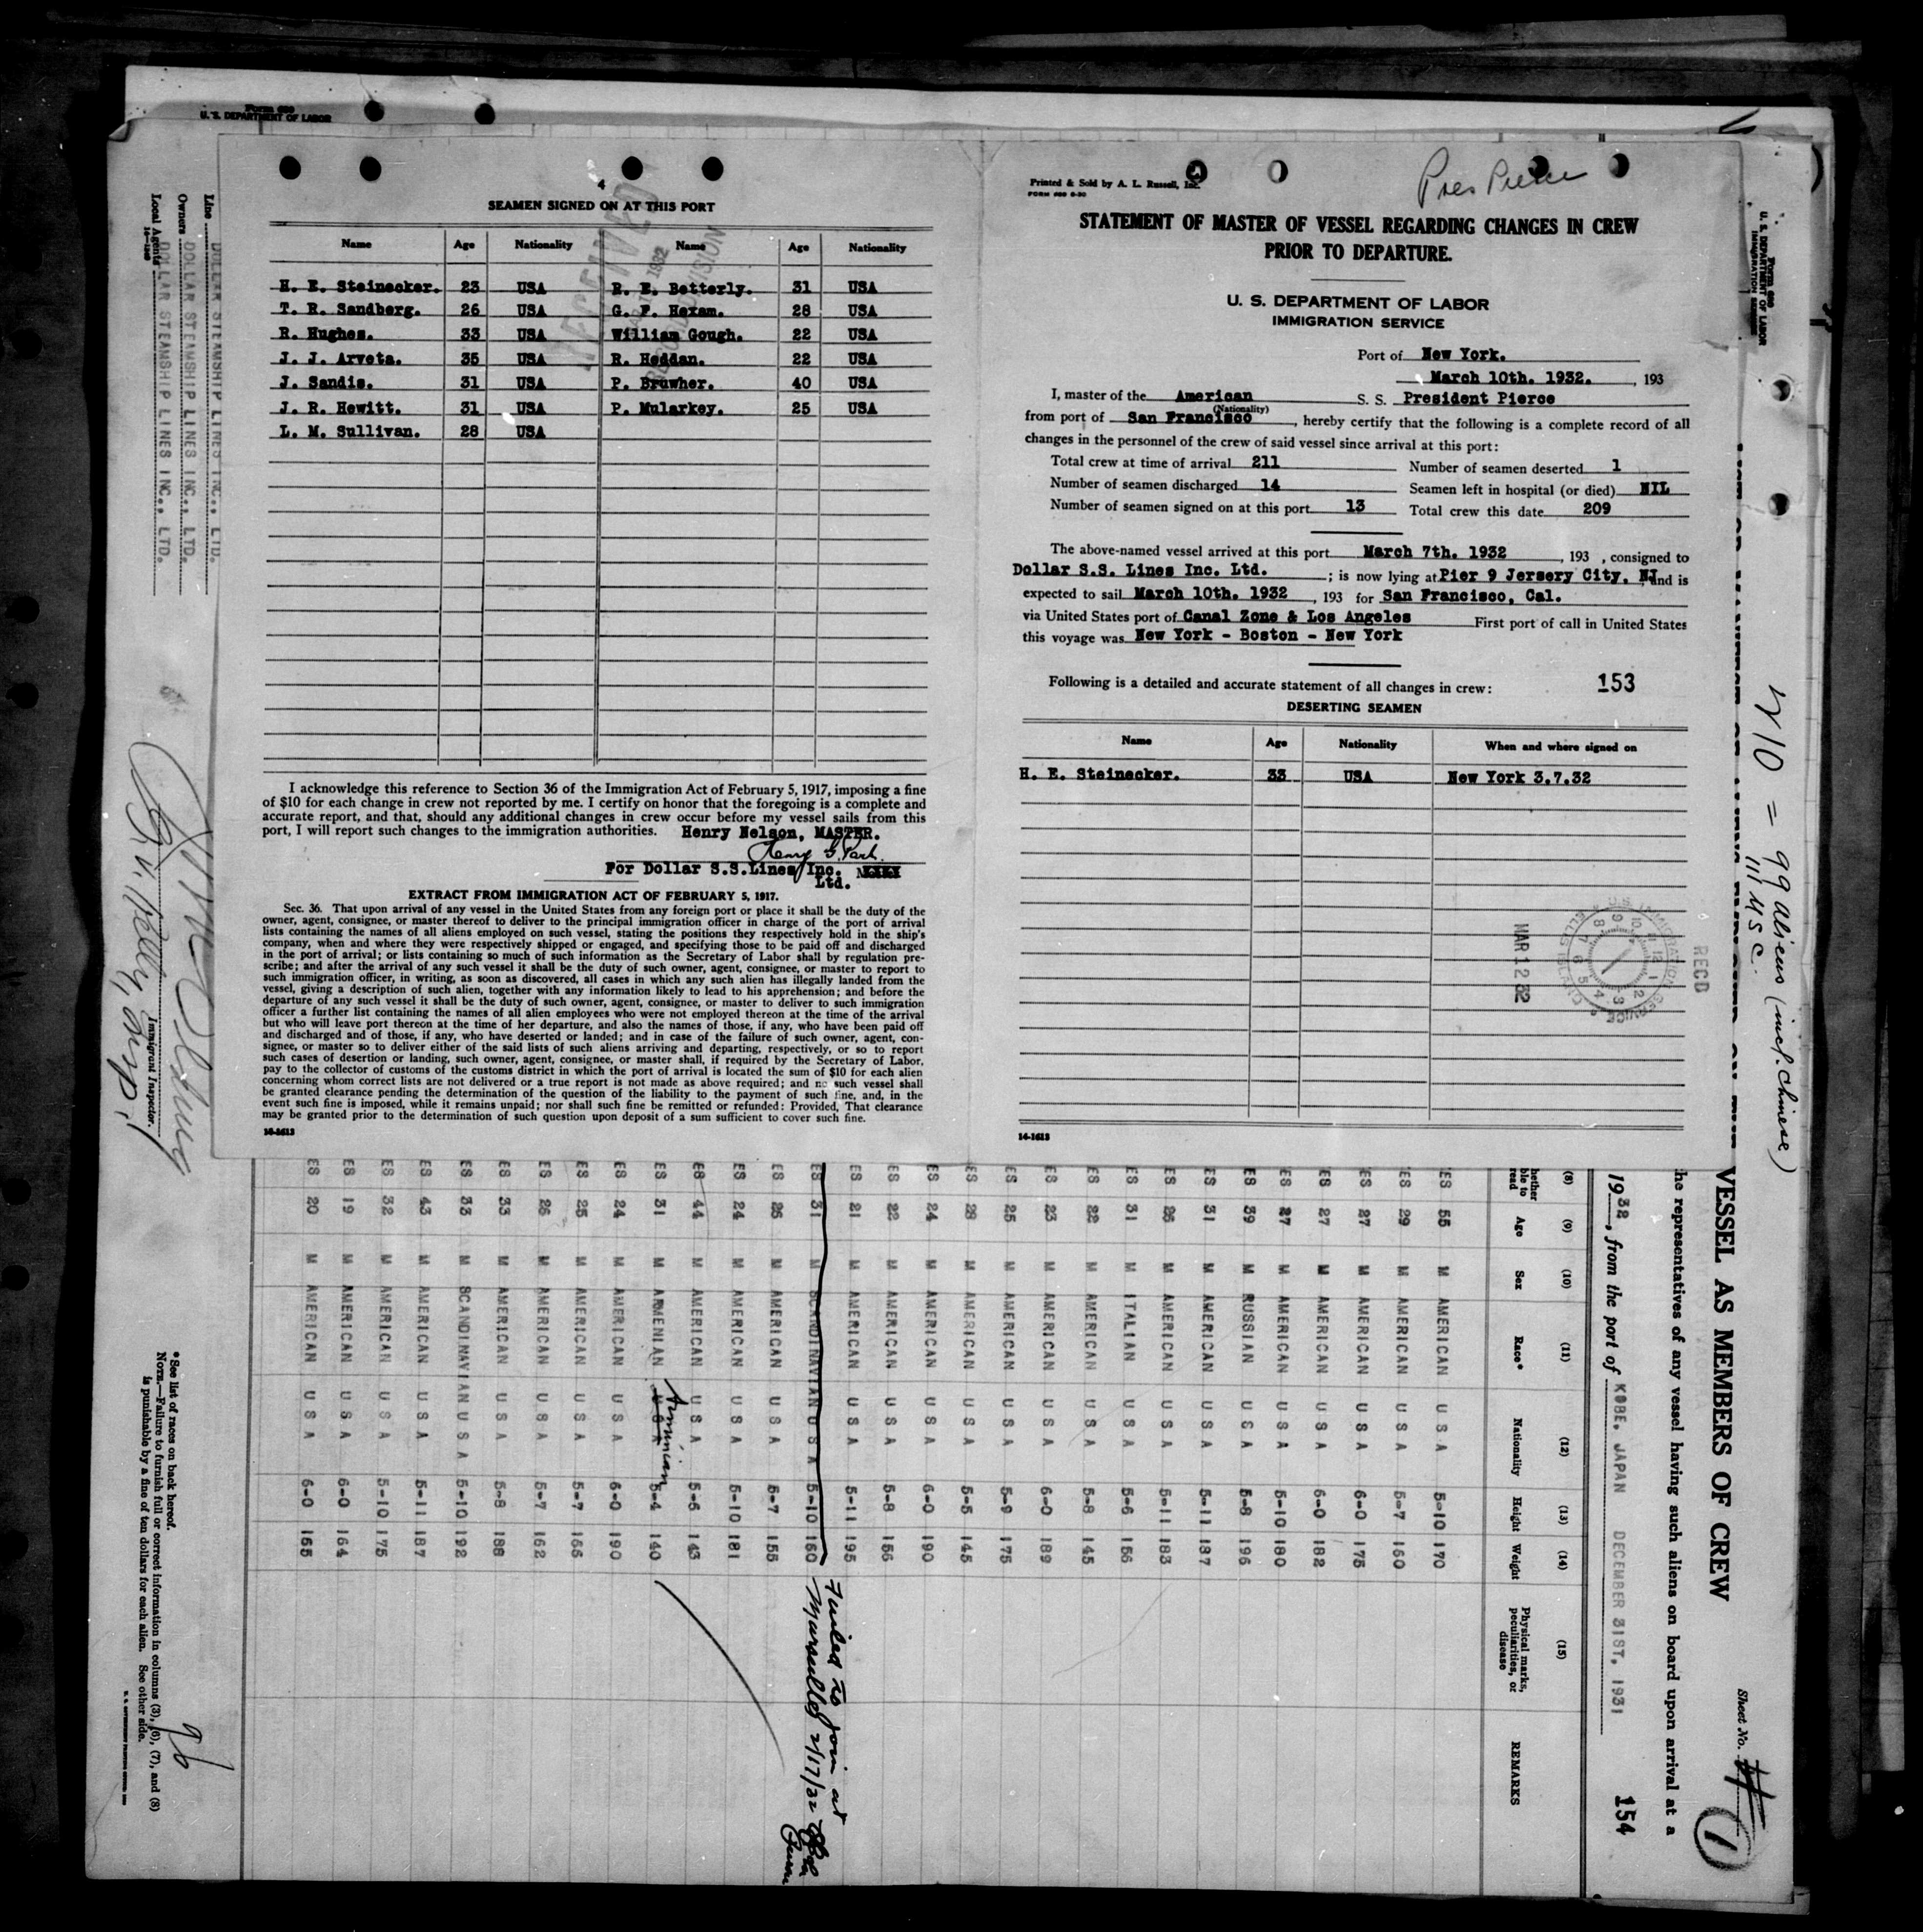 Form 680
U. S. DEPARTMENT OF LABOR
4
SEAMEN SIGNED ON AT THIS PORT
Name Age Nationality Name Age Nationality
H. E. Steinecker. 23 USA R. E. Betterly. 31 USA
T. R. Sandberg. 26 USA G. F. Hexam. 28 USA
R. Hughes. 33 USA William Gough. 22 USA
J. J. Arveta. 35 USA R. Heddan. 22 USA
J. Sandis. 31 USA P. Bruwher. 40 USA
J. R. Hewitt. 31 USA P. Mularkey. 25 USA
L. M. Sullivan. 28 USA
RECEIVED
1932
RECORD DIVISION
I acknowledge this reference to Section 36 of the Immigration Act of February 5, 1917, imposing a fine
of $10 for each change in crew not reported by me. I certify on honor that the foregoing is a complete and
accurate report, and that, should any additional changes in crew occur before my vessel sails from this
port, I will report such changes to the immigration authorities. Henry Nelson, MASTER.
For Dollar S.S.Lines Inc.
Ltd.
EXTRACT FROM IMMIGRATION ACT OF FEBRUARY 5, 1917.
Sec. 36. That upon arrival of any vessel in the United States from any foreign port or place it shall be the duty of the
owner, agent, consignee, or master thereof to deliver to the principal immigration officer in charge of the port of arrival
lists containing the names of all aliens employed on such vessel, stating the positions they respectively hold in the ship's
company, when and where they were respectively shipped or engaged, and specifying those to be paid off and discharged
in the port of arrival; or lists containing so much of such information as the Secretary of Labor shall by regulation pre-
scribe; and after the arrival of any such vessel it shall be the duty of such owner, agent, consignee, or master to report to
such immigration officer, in writing, as soon as discovered, all cases in which any such alien has illegally landed from the
vessel, giving a description of such alien, together with any information likely to lead to his apprehension; and before the
departure of any such vessel it shall be the duty of such owner, agent, consignee, or master to deliver to such immigration
officer a further list containing the names of all alien employees who were not employed thereon at the time of the arrival
but who will leave port thereon at the time of her departure, and also the names of those, if any, who have been paid off
and discharged and of those, if any, who have deserted or landed; and in case of the failure of such owner, agent, con-
signee, or master so to deliver either of the said lists of such aliens arriving and departing, respectively, or so to report
such cases of desertion or landing, such owner, agent, consignee, or master shall, if required by the Secretary of Labor,
pay to the collector of customs of the customs district in which the port of arrival is located the sum of $10 for each alien
concerning whom correct lists are not delivered or a true report is not made as above required; and no such vessel shall
be granted clearance pending the determination of the question of the liability to the payment of such fine, and, in the
event such fine is imposed, while it remains unpaid; nor shall such fine be remitted or refunded: Provided, That clearance
may be granted prior to the determination of such question upon deposit of a sum sufficient to cover such fine.
14-1613
Printed & Sold by A. L. Russell, Inc.
FORM 689 6-30
Pres Pierce
STATEMENT OF MASTER OF VESSEL REGARDING CHANGES IN CREW
PRIOR TO DEPARTURE.
U. S. DEPARTMENT OF LABOR
IMMIGRATION SERVICE
Port of New York.
March 10th. 1932. , 193
I, master of the American S. S. President Pierce
(Nationality)
from port of San Francisco , hereby certify that the following is a complete record of all
changes in the personnel of the crew of said vessel since arrival at this port:
Total crew at time of arrival 211 Number of seamen deserted 1
Number of seamen discharged 14 Seamen left in hospital (or died) NIL
Number of seamen signed on at this port 13 Total crew this date 209
The above-named vessel arrived at this port March 7th. 1932 , 193 , consigned to
Dollar S.S. Lines Inc. Ltd. ; is now lying at Pier 9 Jersery City. NJ and is
expected to sail March 10th. 1932 , 193 for San Francisco, Cal.
via United States port of Canal Zone & Los Angeles First port of call in United States
this voyage was New York - Boston - New York
Following is a detailed and accurate statement of all changes in crew: 153
DESERTING SEAMEN
Name Age Nationality When and where signed on
H. E. Steinecker. 33 USA New York 3.7.32
RECD
MAR 12 32
U. S. IMMIGRATION SERVICE ELLIS ISLAND
14-1613
Line DOLLAR STEAMSHIP LINES INC., LTD.
Owners DOLLAR STEAMSHIP LINES INC., LTD.
Local Agents DOLLAR STEAMSHIP LINES INC., LTD.
Immigrant Inspector.
Form 680
U. S. DEPARTMENT OF LABOR
IMMIGRATION SERVICE
VESSEL AS MEMBERS OF CREW
Sheet No.
1
he representatives of any vessel having such aliens on board upon arrival at a
1932, from the port of KOBE, JAPAN DECEMBER 31ST, 1931
154
= 99 aliens (incl. Chinese)
111 USC.
(8) (9) (10) (11) (12) (13) (14) (15)
hether ble to read Age Sex Race* Nationality Height Weight Physical marks, peculiarities, or disease REMARKS
ES 55 M AMERICAN U S A 5-10 170
ES 29 M AMERICAN U S A 5-7 160
ES 27 M AMERICAN U S A 6-0 175
ES 27 M AMERICAN U S A 6-0 182
ES 27 M AMERICAN U S A 5-10 180
ES 39 M RUSSIAN U S A 5-8 196
ES 31 M AMERICAN U S A 5-11 187
ES 26 M AMERICAN U S A 5-11 183
ES 31 M ITALIAN U S A 5-6 156
ES 22 M AMERICAN U S A 5-8 145
ES 23 M AMERICAN U S A 6-0 189
ES 25 M AMERICAN U S A 5-9 175
ES 28 M AMERICAN U S A 5-5 145
ES 24 M AMERICAN U S A 6-0 190
ES 22 M AMERICAN U S A 5-8 156
ES 21 M AMERICAN U S A 5-11 195
ES 31 M SCANDINAVIAN U S A 5-10 160 Failed to join at Marseilles 2/17/32
ES 26 M AMERICAN U S A 5-7 155
ES 24 M AMERICAN U S A 5-10 181
ES 44 M AMERICAN U S A 5-6 143
ES 31 M ARMENIAN U S A Arminian 5-4 140
ES 24 M AMERICAN U S A 6-0 190
ES 25 M AMERICAN U S A 5-7 156
ES 26 M AMERICAN U S A 5-7 162
ES 33 M AMERICAN U S A 5-8 188
ES 33 M SCANDINAVIAN U S A 5-10 192
ES 43 M AMERICAN U S A 5-11 187
ES 32 M AMERICAN U S A 5-10 175
ES 19 M AMERICAN U S A 6-0 164
ES 20 M AMERICAN U S A 6-0 165
*See list of races on back hereof.
NOTE.—Failure to furnish full or correct information in columns (3), (6), (7), and (8)
is punishable by a fine of ten dollars for each alien. See other side.
96